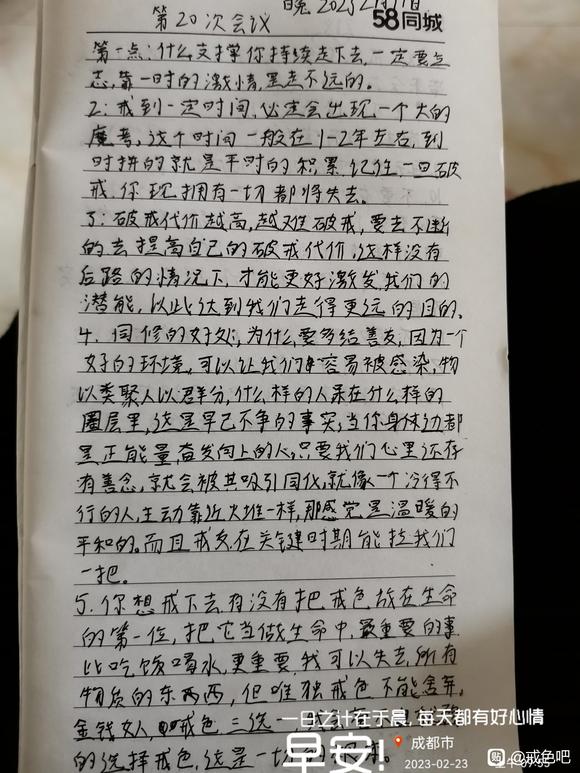 晚 2023年2月
第20次会议
58同城
第一点:什么支撑你持续走下去,一定要立
志,靠一时的激情,是走不远的。
2:戒到一定时间,必定会出现一个大的
魔考,这个时间一般在1-2年左右,到
时拼的就是平时的积累,记住,一旦破
戒,你现拥有一切都将失去。
3:破戒代价越高,越难破戒,要去不断
的去提高自己的破戒代价,这样没有
后路的情况下,才能更好激发我们的
潜能,以此达到我们走得更远的目的。
4.同修的好处,为什么要多结善友,因为一个
好的环境,可以让我们容易被感染,物
以类聚人以群分,什么样的人呆在什么样的
圈层里,这是早已不争的事实,当你身体边都
是正能量,奋发向上的人,只要我们心里还存
有善念,就会被其吸引同化,就像一个冷得不
行的人,主动靠近火堆一样,那感觉是温暖的
平和的。而且戒友在关键时期能拉我们
一把。
5.你想戒下去有没有把戒色放在生命
的第一位,把它当做生命中,最重要的事
比吃饭喝水,更重要,我可以失去,所有
物质的东西,但唯独戒色不能舍弃,
金钱女人,戒色三选一,
的选择戒色,这是一切的
一日之计在于晨,每天都有好心情
早安!
成都市
2023-02-23
贴 @戒色吧